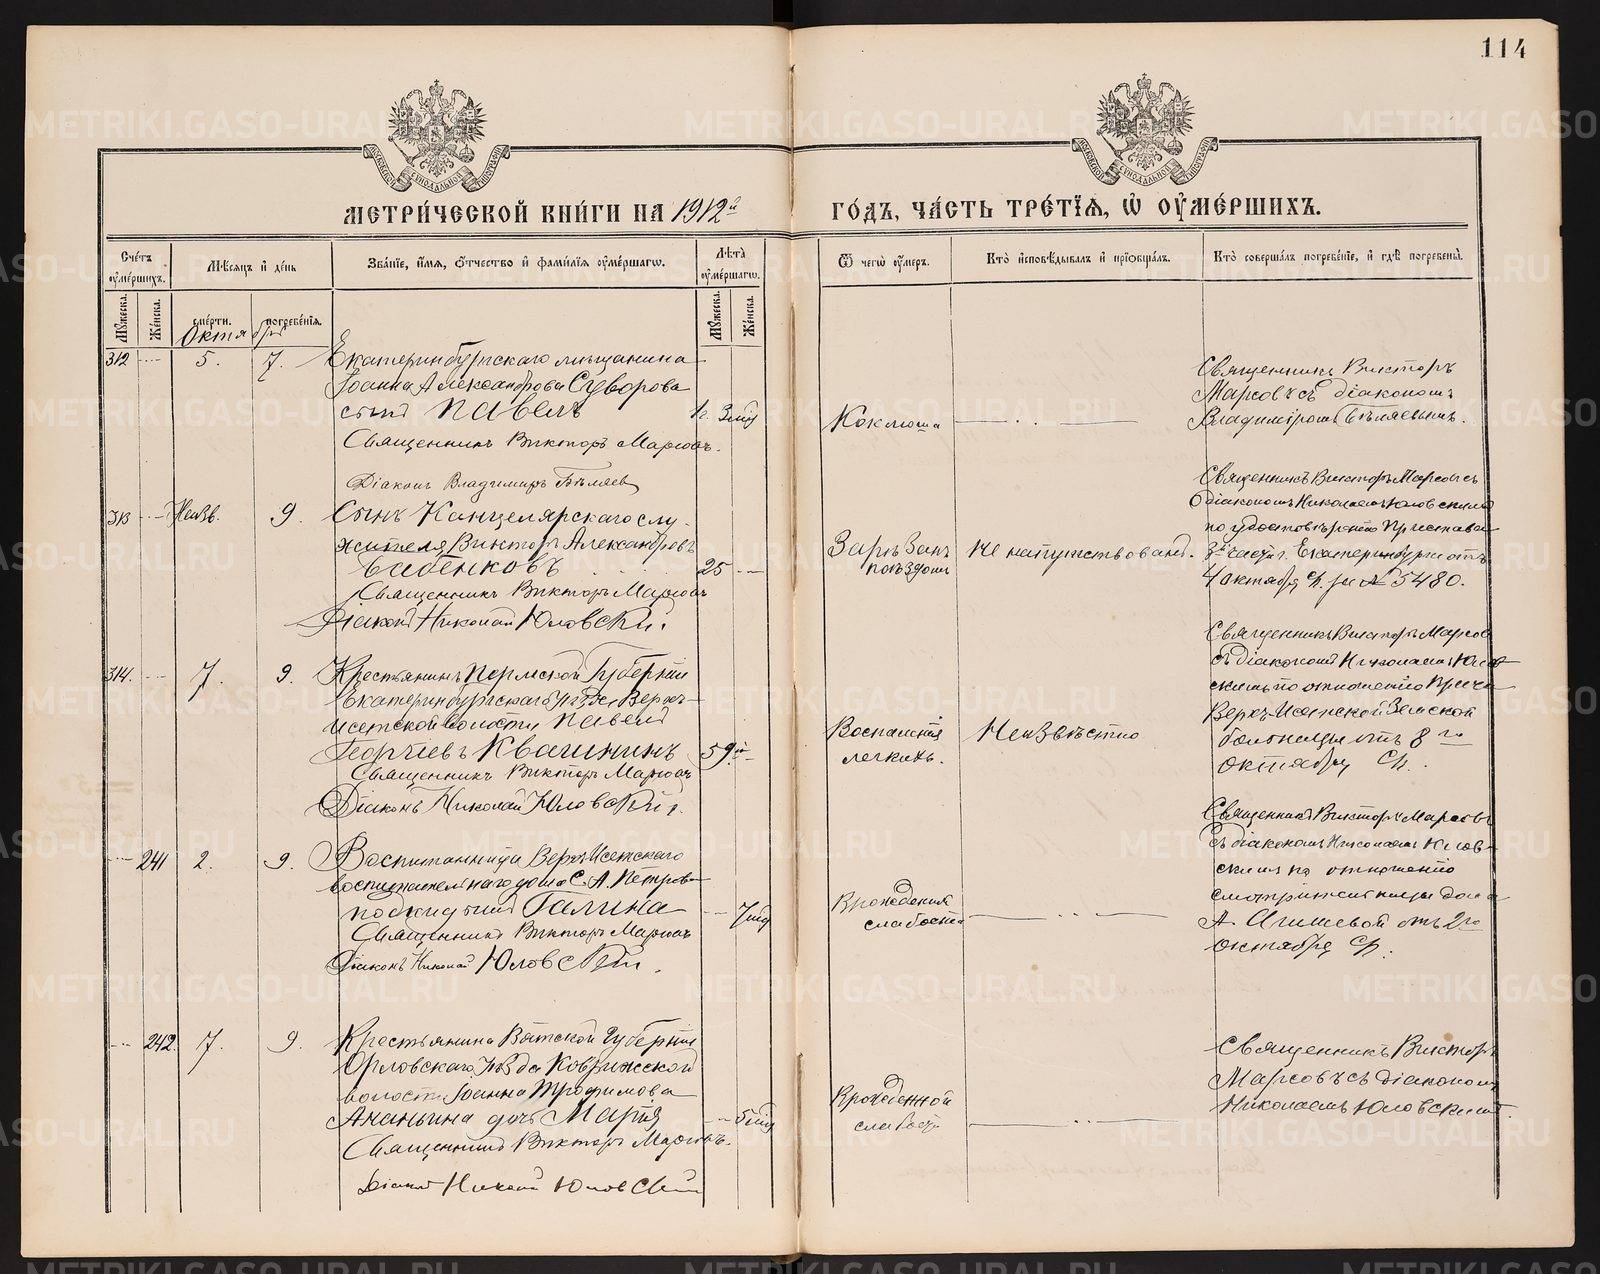 114
МЕТРИ́ЧЕСКОЙ КНИ́ГИ НА 1912й
ГО́ДЪ, ЧА́СТЬ ТРЕ́ТЇѦ, Ѡ҆ ОУ҆МЕ́РШИХЪ.
Сче́тъ оу҆ме́ршихъ.
Мѣ́сѧцъ и҆ де́нь
Зва́нїе, и҆́мѧ, ѻ҆́тчество и҆ фами́лїѧ оу҆ме́ршагѡ.
Лѣ́та оу҆ме́ршагѡ.
Ѿ чегѡ̀ оу҆́меръ.
Кто̀ и҆сповѣ́дывалъ и҆ прїѡбща́лъ.
Кто̀ соверша́лъ погребе́нїе, и҆ гдѣ̀ погребены̀.
Мꙋ́жеска.
Же́нска.
сме́рти.
погребе́нїѧ.
Мꙋ́жеска.
Же́нска.
Октября
312 5. 7. Екатеринбургскаго мѣщанина
Іоанна Александрова Суворова
сынъ Павелъ 1г. 3мц
Священникъ Викторъ Марсовъ.
Діаконъ Владимиръ Бѣляевъ
Коклюша
Священникъ Викторъ
Марсовъ съ діакономъ
Владиміромъ Бѣляевымъ.
313 Неизв. 9. Сынъ Канцелярскаго слу-
жителя Викторъ Александровъ
Бабенковъ 25
Священникъ Викторъ Марсовъ
Діаконъ Николай Юловскій.
Зарѣзанъ
поѣздомъ
Не напутствованъ.
Священникъ Викторъ Марсовъ съ
діакономъ Николаемъ Юловскимъ
по удостовѣренію Пристава
3й части г. Екатеринбурга отъ
4 октября с/г. за № 5480.
314. 7. 9. Крестьянинъ Пермской Губерніи
Екатеринбургскаго уѣзда Верхъ-
Исетской волости Павелъ
Георгіевъ Квашнинъ 59
Священникъ Викторъ Марсовъ
Діаконъ Николай Юловскій.
Воспаленія
легкихъ.
Неизвѣстно
Священникъ Викторъ Марсовъ
съ діакономъ Николаемъ Юлов-
скимъ по отношенію
Верхъ-Исетской Земской
больницы отъ 8го
октября с/г.
241 2. 9. Воспитанница Верхъ-Исетскаго
воспитательнаго дома С. А. Петрова
подкидышъ Галина 7мц
Священникъ Викторъ Марсовъ
Діаконъ Николай Юловскій.
Врожденія
слабости
Священникъ Викторъ Марсовъ
съ діакономъ Николаемъ Юлов-
скимъ по отношенію
смотрительницы дома
отъ 2го
октября с/г.
242. 7. 9. Крестьянина Вятской Губерніи
Орловскаго Уѣзда
волости Іоанна Трофимова
Ананьина дочь Марія 5мц
Священникъ Викторъ Марсовъ.
Діаконъ Николай Юловскій
Врожденной
слабост.
Священникъ Викторъ
Марсовъ съ діакономъ
Николаемъ Юловскимъ.
METRIKI.GASO-URAL.RU